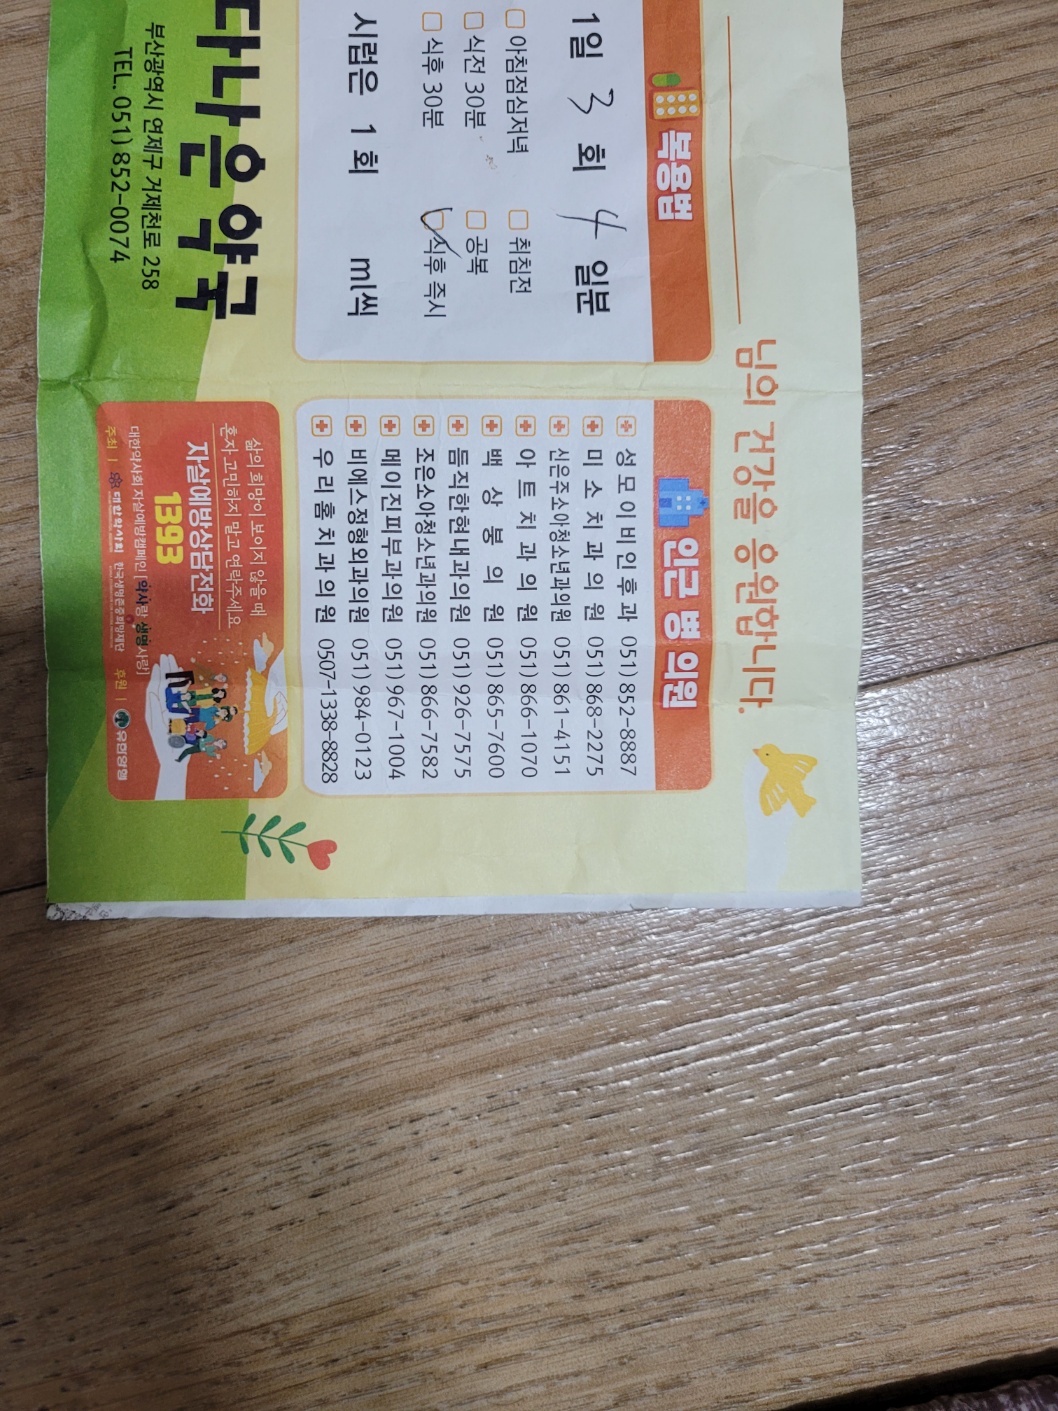 님의 건강을 응원합니다.
복용법
1일 3 회 4 일분
아침점심저녁 취침전
식전 30분 공복
식후 30분 식후 즉시
시럽은 1 회 ml씩
인근 병 의원
성모이비인후과 051)852-8887
미소치과의원 051)868-2275
신은주소아청소년과의원 051)861-4151
아트치과의원 051)866-1070
백상봉의원 051)865-7600
듬직한현내과의원 051)926-7575
조은소아청소년과의원 051)866-7582
메이진피부과의원 051)967-1004
비에스정형외과의원 051)984-0123
우리홈치과의원 0507-1338-8828
다나은약국
부산광역시 연제구 거제천로 258
TEL. 051) 852-0074
삶의 희망이 보이지 않을 때
혼자 고민하지 말고 연락주세요.
자살예방상담전화
1393
대한약사회 자살예방캠페인 [약사랑 생명사랑]
주최 | 대한약사회 한국생명존중희망재단 후원 | 유한양행